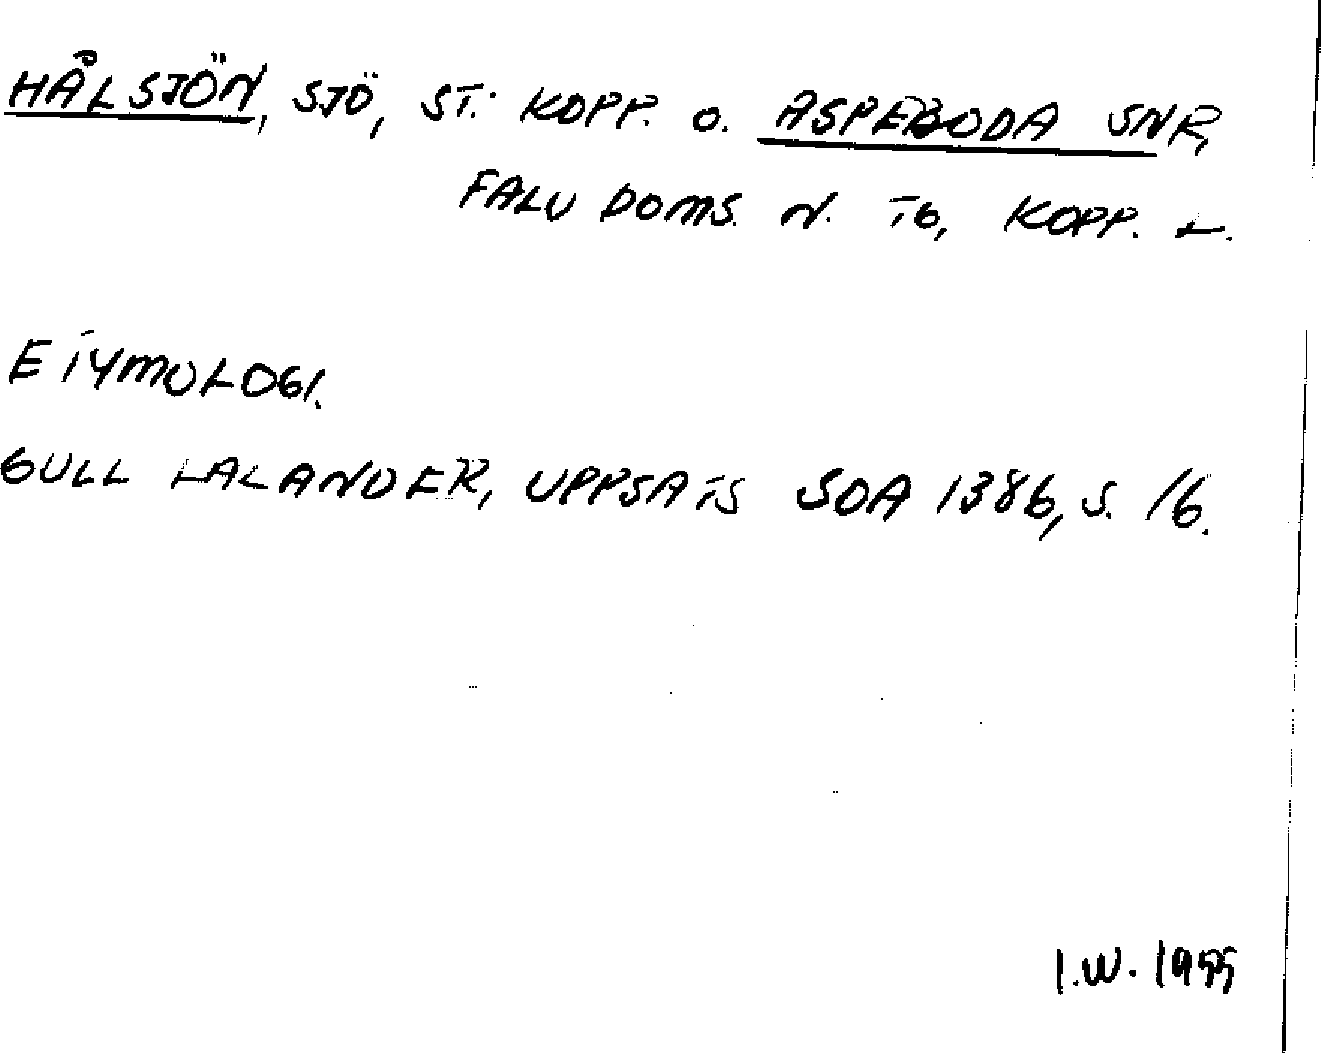 HÅLSJÖN, SJÖ, ST. KOPP. O. ASPEBODA SNR,
FALU DOMS. N. TG, KOPP. L.
ETYMOLOGI.
GULL LALANDER, UPPSATS SOA 1386, S. 16.
I.W. 1955